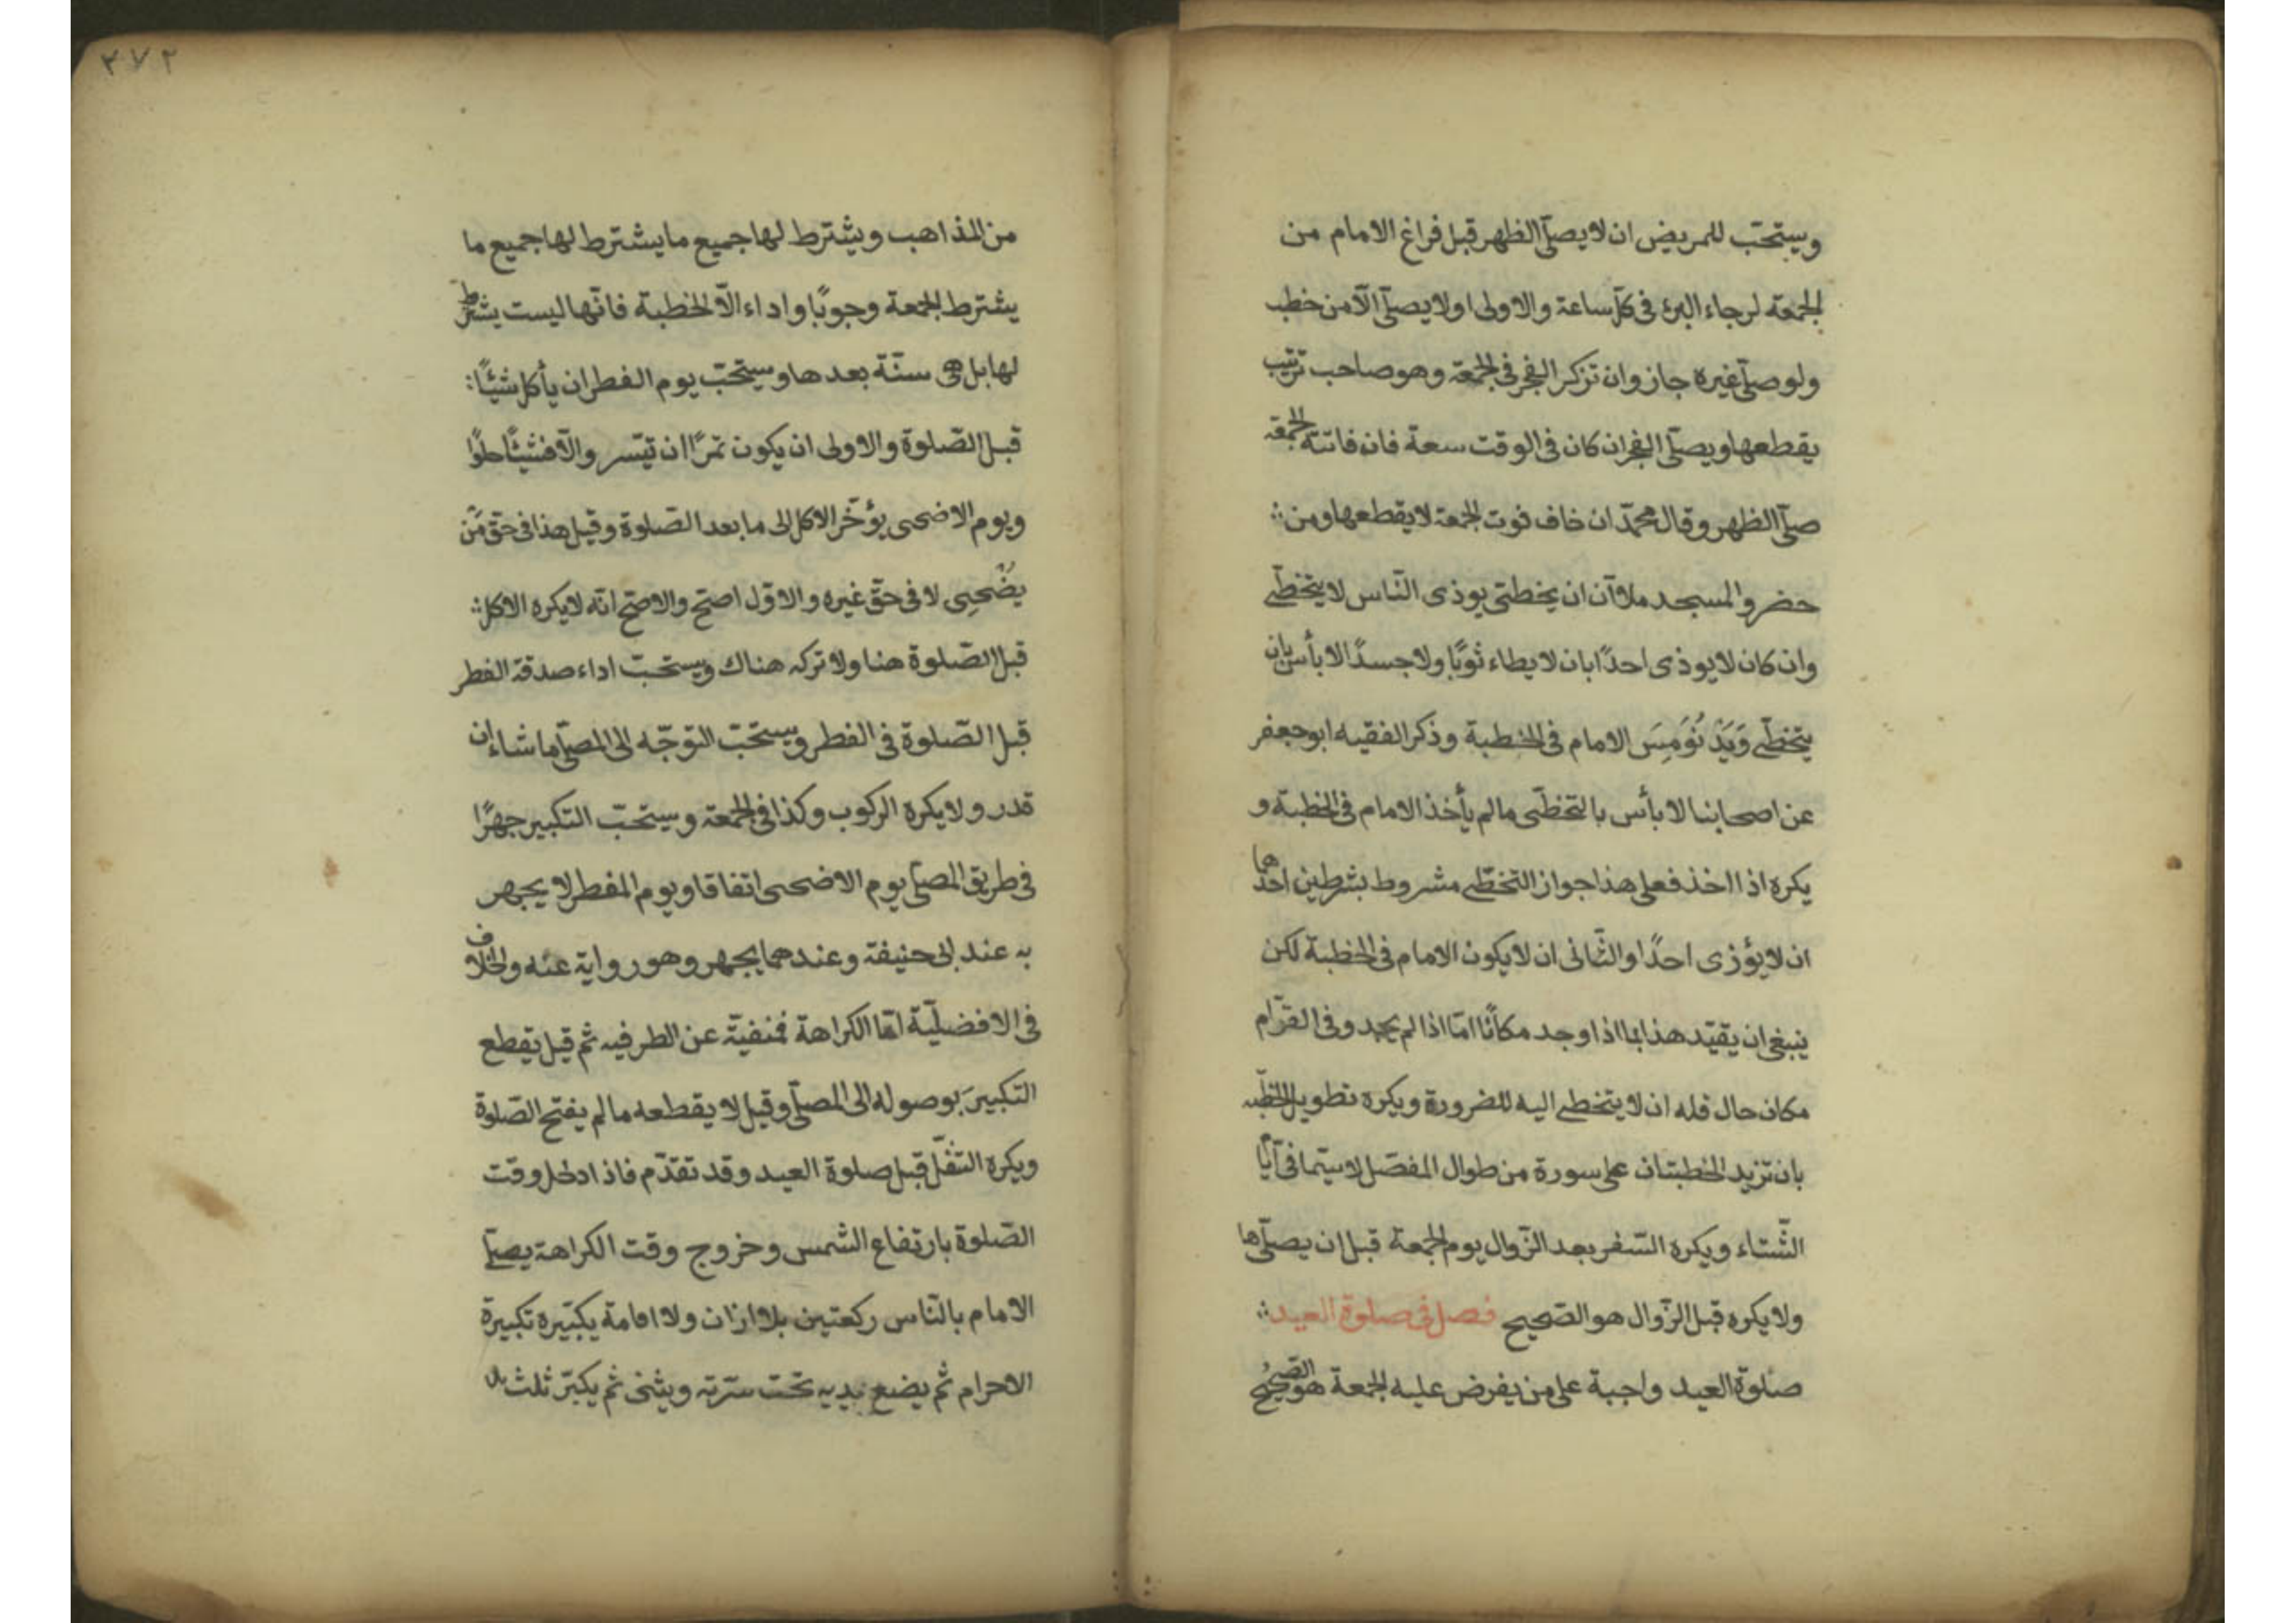 ويستحبّ للمريض ان لا يصلّى الظهر قبل فراغ الامام من
الجمعة لرجاء البرئ فى كلّ ساعة والاولى اولا يصلّى الّا من خطب
ولو صلّى غيره جاز وان تزكر الفجر فى الجمعة وهو صاحب ترتيب
يقطعها ويصلّى الفجر ان كان فى الوقت سعة فان فاتته الجمعة
صلّى الظهر وقال محمّد ان خاف فوت الجمعة لا يقطعها ومن
حضر والمسجد ملاٰن ان يخطتى يوذى النّاس لا يتخطّى
وان كان لا يوذى احدًا بان لا يطاء ثوبًا ولا جسدًا لا بأس بان
يتخطّى وَيَدْنُوَ مِسَ الامام فى الخطبة وذكر الفقيه ابو جعفر
عن اصحابنا لا بأس بالتخطّى مالم يأخذ الامام فى الخطبة و
يكره اذا اخذ فعلى هذا جواز التخطّى مشروط بشرطين احدها
ان لا يؤزى احدًا والثّانى ان لا يكون الامام فى الخطبة لكن
ينبغى ان يقيّد هذا بما اذا وجد مكانًا امّا اذا لم يجد وفى القرّام
مكان حال فله ان لا يتخطى اليه للضرورة ويكره تطويل الخطبه
بان تزيد الخطبتان على سورة من طوال المفصّل لا سيّما فى ايّا
الشّتاء ويكره السّفر بعد الزّوال يوم الجمعة قبل ان يصلّىها
ولا يكره قبل الزّوال هو الصّحيح فصل فى صلوة العيد
صلوة العيد واجبة على من يفرض عليه الجمعة هو الصّحيح
٣٧٢
من المذاهب ويشترط لها جميع ما يشترط لها جميع ما
يشترط الجمعة وجوبًا واداء الّا الخطبة فانّها ليست يشترط
لها بل هى سنّة بعدها ويستحبّ يوم الفطر ان يأكل شيئًا
قبل الصّلوة والاولى ان يكون تمرًا ان تيسّر والّا فشيئًا حلوًا
ويوم الاضحى يؤخّر الاكل الى ما بعد الصّلوة وقيل هذا فى حقّ مَن
يضْحىِ لا فى حقّ غيره والاوّل اصحّ والاصحّ انّه لا يكره الاكل
قبل الصّلوة هنا ولا تركه هناك ويستحبّ اداء صدقة الفطر
قبل الصّلوة فى الفطر ويستحبّ التوجّه الى المصلّى ماشاء ان
قدر ولا يكره الركوب وكذا فى الجمعة ويستحبّ التكبير جهرًا
فى طريق المصلّى يوم الاضحى اتفاقا ويوم المفطر لا يجهر
به عند ابى حنيفة وعندهما يجهر وهو رواية عنه والخلاف
فى الافضليّة امّا الكراهة فمنفيّة عن الطرفيه ثم قيل يقطع
التكبيرَ بوصوله الى المصلّى وقيل لا يقطعه مالم يفتح الصّلوة
ويكره التنفّل قبل صلوة العيد وقد تقدّم فاذا دخل وقت
الصّلوة بارتفاع الشمس وخروج وقت الكراهة يصلّى
الامام بالنّاس ركعتين بلا ازان ولا اقامة يكبّيره تكبيرة
الاحرام ثم يضع يديه تحت سرّته ويثنى ثم يكبّر ثلث